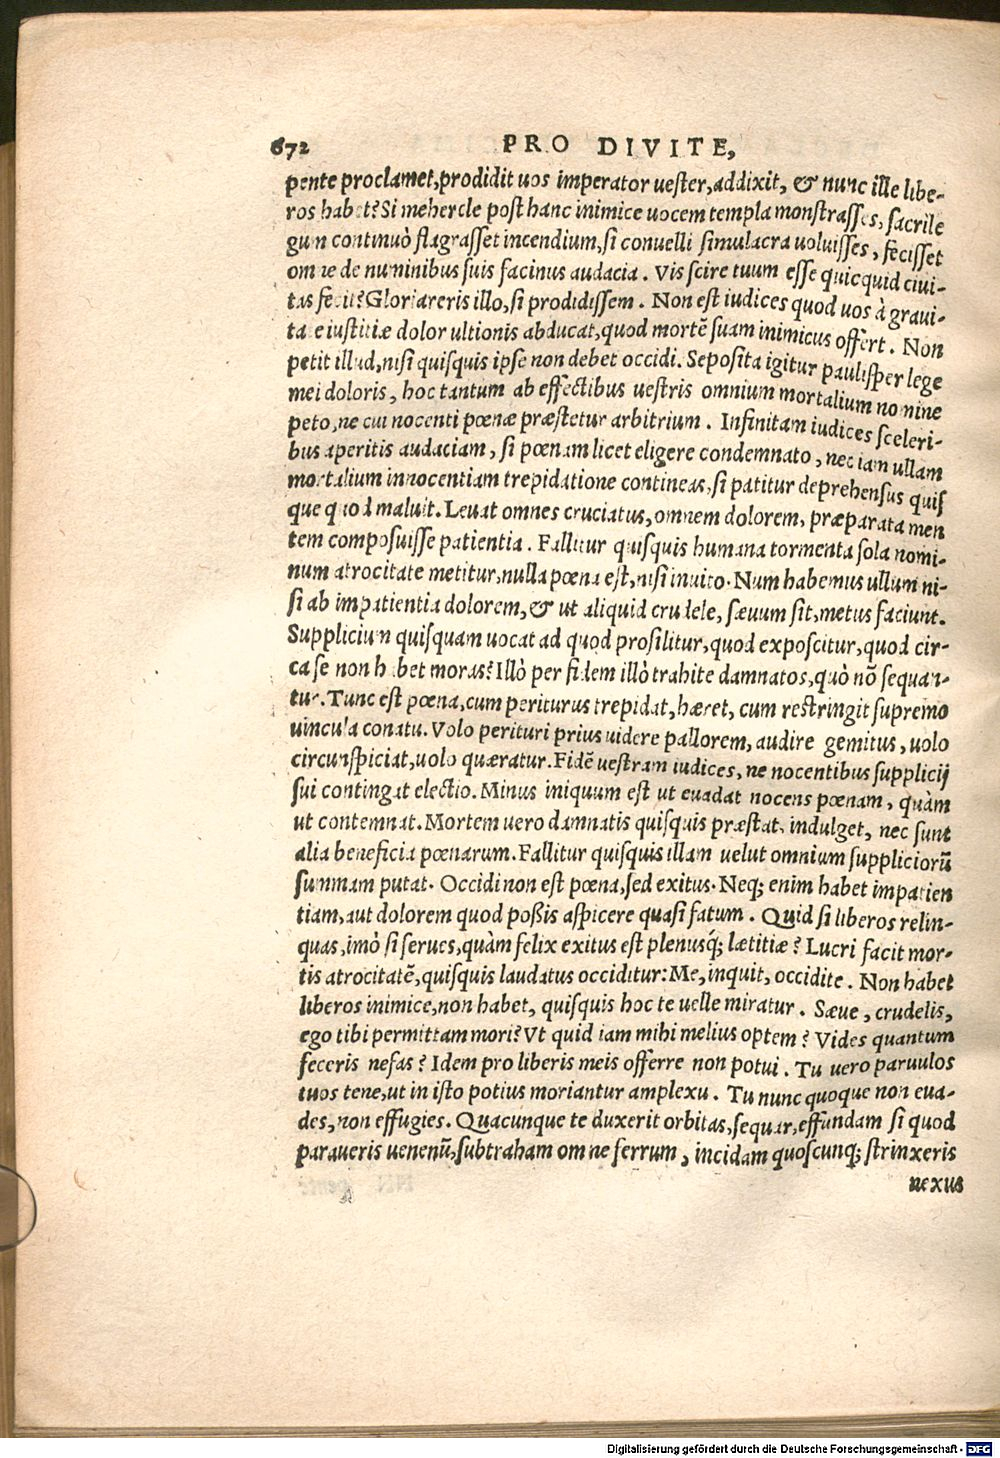 672 PRO DIVITE,
pente proclamet, prodidit uos imperator uester, addixit, & nunc ille libe-
ros habet? Si mehercle post hanc inimice uocem templa monstrasses, sacrile
gum continuò flagrasset incendium, si conuelli simulacra uoluisses, fecisset
omne de numinibus suis facinus audacia. Vis scire tuum esse quicquid ciui-
tas fecit? Gloriareris illo, si prodidissem. Non est iudices quod uos à graui-
tate iustitiæ dolor ultionis abducat, quod mortē suam inimicus offert. Non
petit illud, nisi quisquis ipse non debet occidi. Seposita igitur paulisper lege
mei doloris, hoc tantum ab effectibus uestris omnium mortalium nomine
peto, ne cui nocenti pœnæ præstetur arbitrium. Infinitam iudices sceleri-
bus aperitis audaciam, si pœnam licet eligere condemnato, nec iam ullam
mortalium innocentiam trepidatione contineas, si patitur deprehensus quis
que quod maluit. Leuat omnes cruciatus, omnem dolorem, præparata men
tem composuisse patientia. Fallitur quisquis humana tormenta sola nomi-
num atrocitate metitur, nulla pœna est, nisi inuito. Num habemus ullum ni-
si ab impatientia dolorem, & ut aliquid crudele, sæuum sit, metus faciunt.
Supplicium quisquam uocat ad quod prosilitur, quod exposcitur, quod cir-
ca se non habet moras? Illò per fidem illò trahite damnatos, quò nō sequan-
tur. Tunc est pœna, cum periturus trepidat, hæret, cum restringit supremo
uincula conatu. Volo perituri prius uidere pallorem, audire gemitus, uolo
circunspiciat, uolo quæratur. Fidē uestram iudices, ne nocentibus supplicij
sui contingat electio. Minus iniquum est ut euadat nocens pœnam, quàm
ut contemnat. Mortem uero damnatis quisquis præstat, indulget, nec sunt
alia beneficia pœnarum. Fallitur quisquis illam uelut omnium suppliciorū
summam putat. Occidi non est pœna, sed exitus. Neq; enim habet impatien
tiam, aut dolorem quod poßis aspicere quasi fatum. Quid si liberos relin-
quas, imò si serues, quàm felix exitus est plenusq́; lætitiæ? Lucri facit mor-
tis atrocitatē, quisquis laudatus occiditur: Me, inquit, occidite. Non habet
liberos inimice, non habet, quisquis hoc te uelle miratur. Sæue, crudelis,
ego tibi permittam mori? Vt quid iam mihi melius optem? Vides quantum
feceris nefas? Idem pro liberis meis offerre non potui. Tu uero paruulos
tuos tene, ut in isto potius moriantur amplexu. Tu nunc quoque non eua-
des, non effugies. Quacunque te duxerit orbitas, sequar, effundam si quod
paraueris uenenū, subtraham omne ferrum, incidam quoscunq; strinxeris
nexus
Digitalisierung gefördert durch die Deutsche Forschungsgemeinschaft - DFG